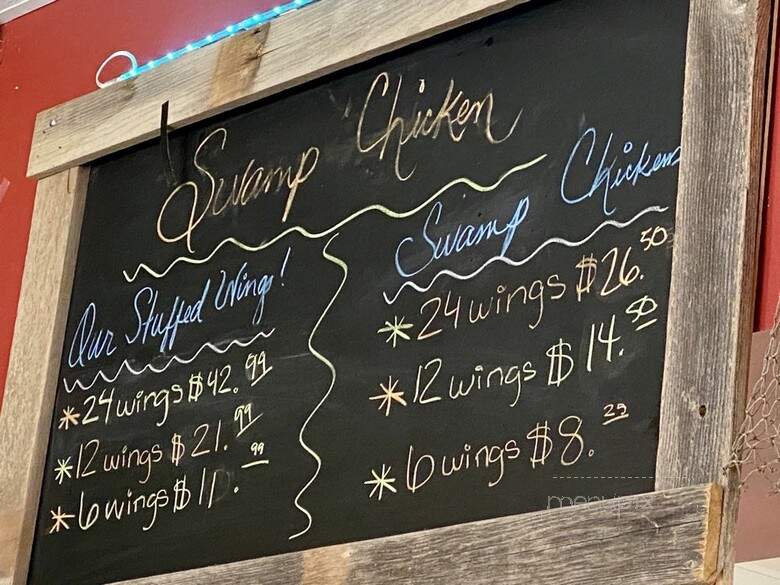 Swamp Chicken
Our Stuffed Wings!
* 24 wings $42.99
* 12 wings $21.99
* 6 wings $11.99
Swamp Chicken
* 24 wings $26.50
* 12 wings $14.50
* 6 wings $8.29